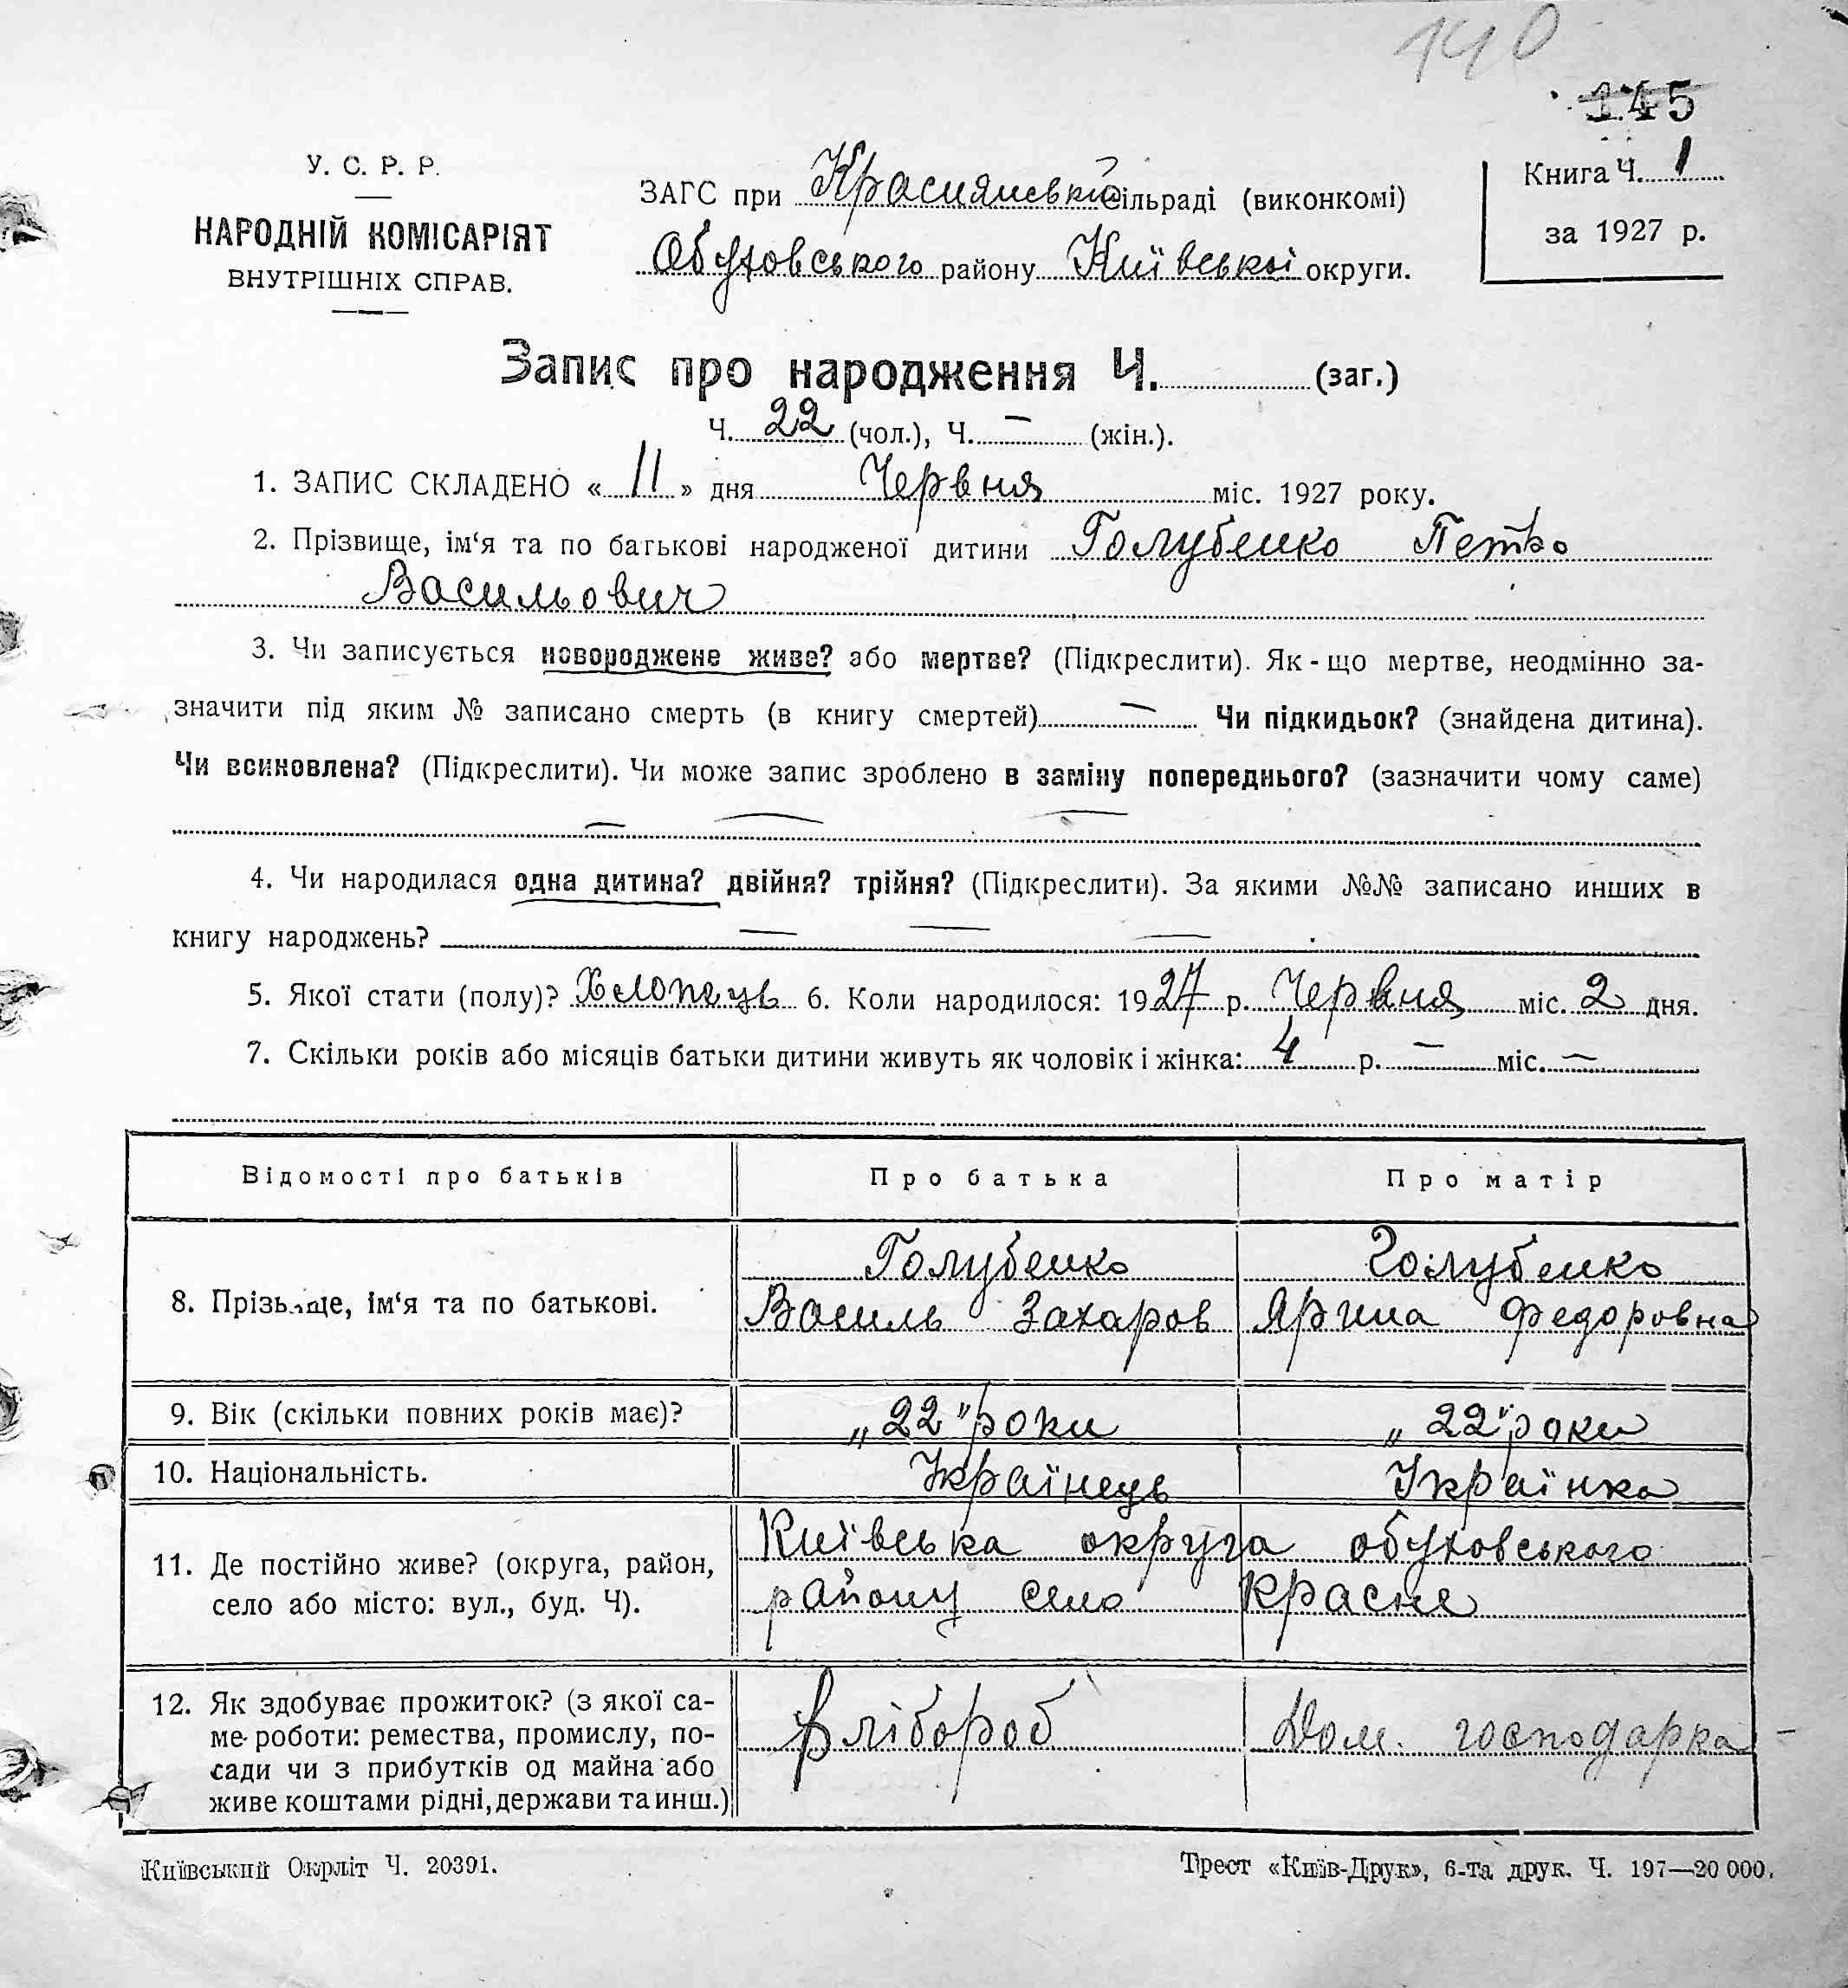 140
145
У. С. Р. Р.
НАРОДНІЙ КОМІСАРІЯТ
ВНУТРІШНІХ СПРАВ.
ЗАГС при Краснянській сільраді (виконкомі)
Обуховського району Київської округи.
Книга Ч. 1
за 1927 р.
Запис про народження Ч. (заг.)
Ч. 22 (чол.), Ч. — (жін.).
1. ЗАПИС СКЛАДЕНО « 11 » дня Червня міс. 1927 року.
2. Прізвище, ім‘я та по батькові народженої дитини Голубенко Петро
Васильович
3. Чи записується новороджене живе? або мертве? (Підкреслити). Як-що мертве, неодмінно за-
значити під яким № записано смерть (в книгу смертей) — Чи підкидьок? (знайдена дитина).
Чи всиновлена? (Підкреслити). Чи може запис зроблено в заміну попереднього? (зазначити чому саме)
— — —
4. Чи народилася одна дитина? двійня? трійня? (Підкреслити). За якими №№ записано инших в
книгу народжень? — — —
5. Якої стати (полу)? Хлопець 6. Коли народилося: 1927 р. Червня міс. 2 дня.
7. Скільки років або місяців батьки дитини живуть як чоловік і жінка: 4 р. — міс. —
Відомості про батьків Про батька Про матір
8. Прізвище, ім‘я та по батькові.
Голубенко Голубенко
Василь Захаров Ярина Федоровна
9. Вік (скільки повних років має)? „22" роки „22" роки
10. Національність. Українець Українка
11. Де постійно живе? (округа, район,
село або місто: вул., буд. Ч).
Київська округа обуховського
району село Красне
12. Як здобуває прожиток? (з якої са-
ме роботи: ремества, промислу, по-
сади чи з прибутків од майна або
живе коштами рідні, держави та инш.)
Хлібороб Дом. господарка
Київський Окрліт Ч. 20391.
Трест «Київ-Друк», 6-та друк. Ч. 197—20 000.